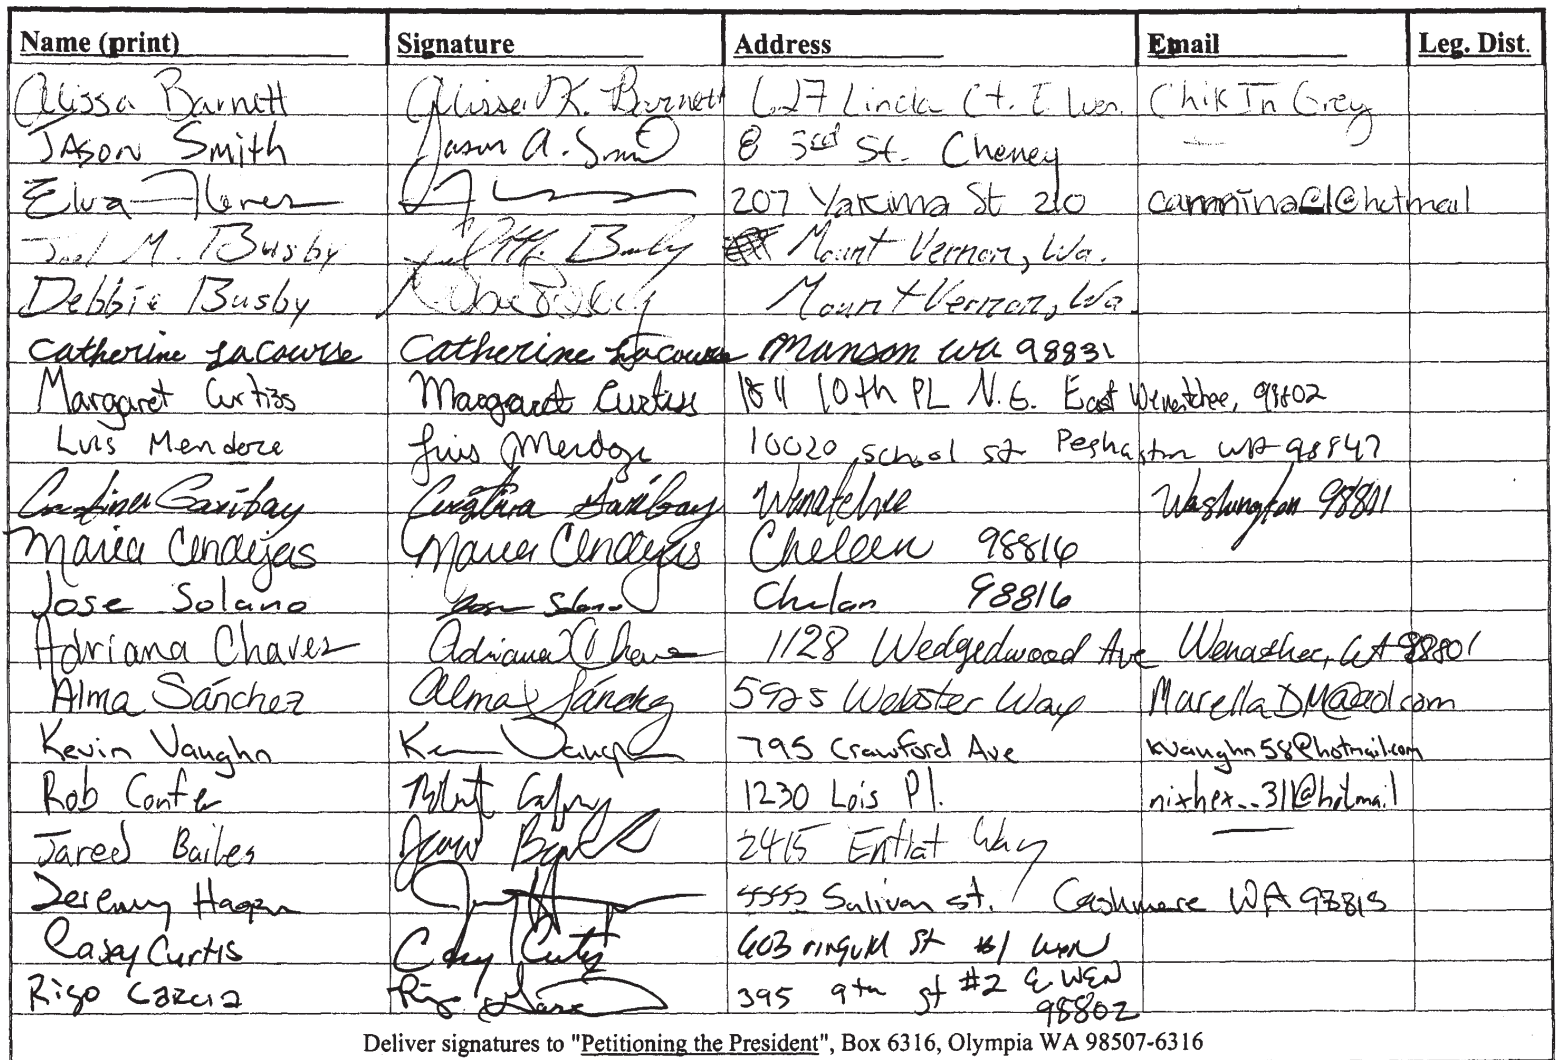 Name (print) Signature Address Email Leg. Dist.
Alissa Barnett Alissa K. Barnett 627 Linda Ct. E Wen. Chik In Grey
Jason Smith Jason A. Smith 8 3rd St. Cheney
Elva Flores 207 Yakima St 210
M. Busby M. Busby Mount Vernon, Wa.
Debbie Busby Debbie Busby Mount Vernon, Wa.
Catherine Lacourse Catherine Lacourse Manson WA 98831
Margaret Curtiss Margaret Curtiss 1811 10th PL N.E. East Wenatchee, 98802
Luis Mendoza Luis Mendoza 10020 School St Peshastin WA 98847
Garibay Garibay Wenatchee Washington 98801
Maria Cendejas Maria Cendejas Chelan 98816
Jose Solano Jose Solano Chelan 98816
Adriana Chavez Adriana Chavez 1128 Wedgedwood Ave Wenatchee, WA 98801
Alma Sánchez Alma Sánchez 5925 Webster Way MarellaDM@aol.com
Kevin Vaughn K Vaughn 795 Crawford Ave kvaughn58@hotmail.com
Rob 1230 Lois Pl.
Jared Bailes Jared 2415 Entiat Way
Jeremy Hagen Sulivan st. Cashmere WA 98815
Casey Curtis Casey Curtis 603 St #1 WEN
Rigo Garcia Rigo 395 9th St #2 E. WEN
98802
Deliver signatures to "Petitioning the President", Box 6316, Olympia WA 98507-6316